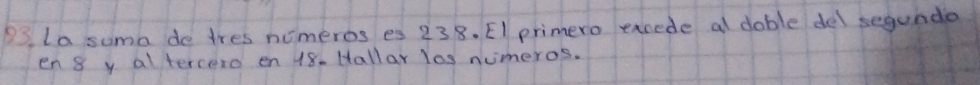 93. La suma de tres números es 238. El primero excede al doble del segundo
en 8 y al tercero en 18. Hallar los números.